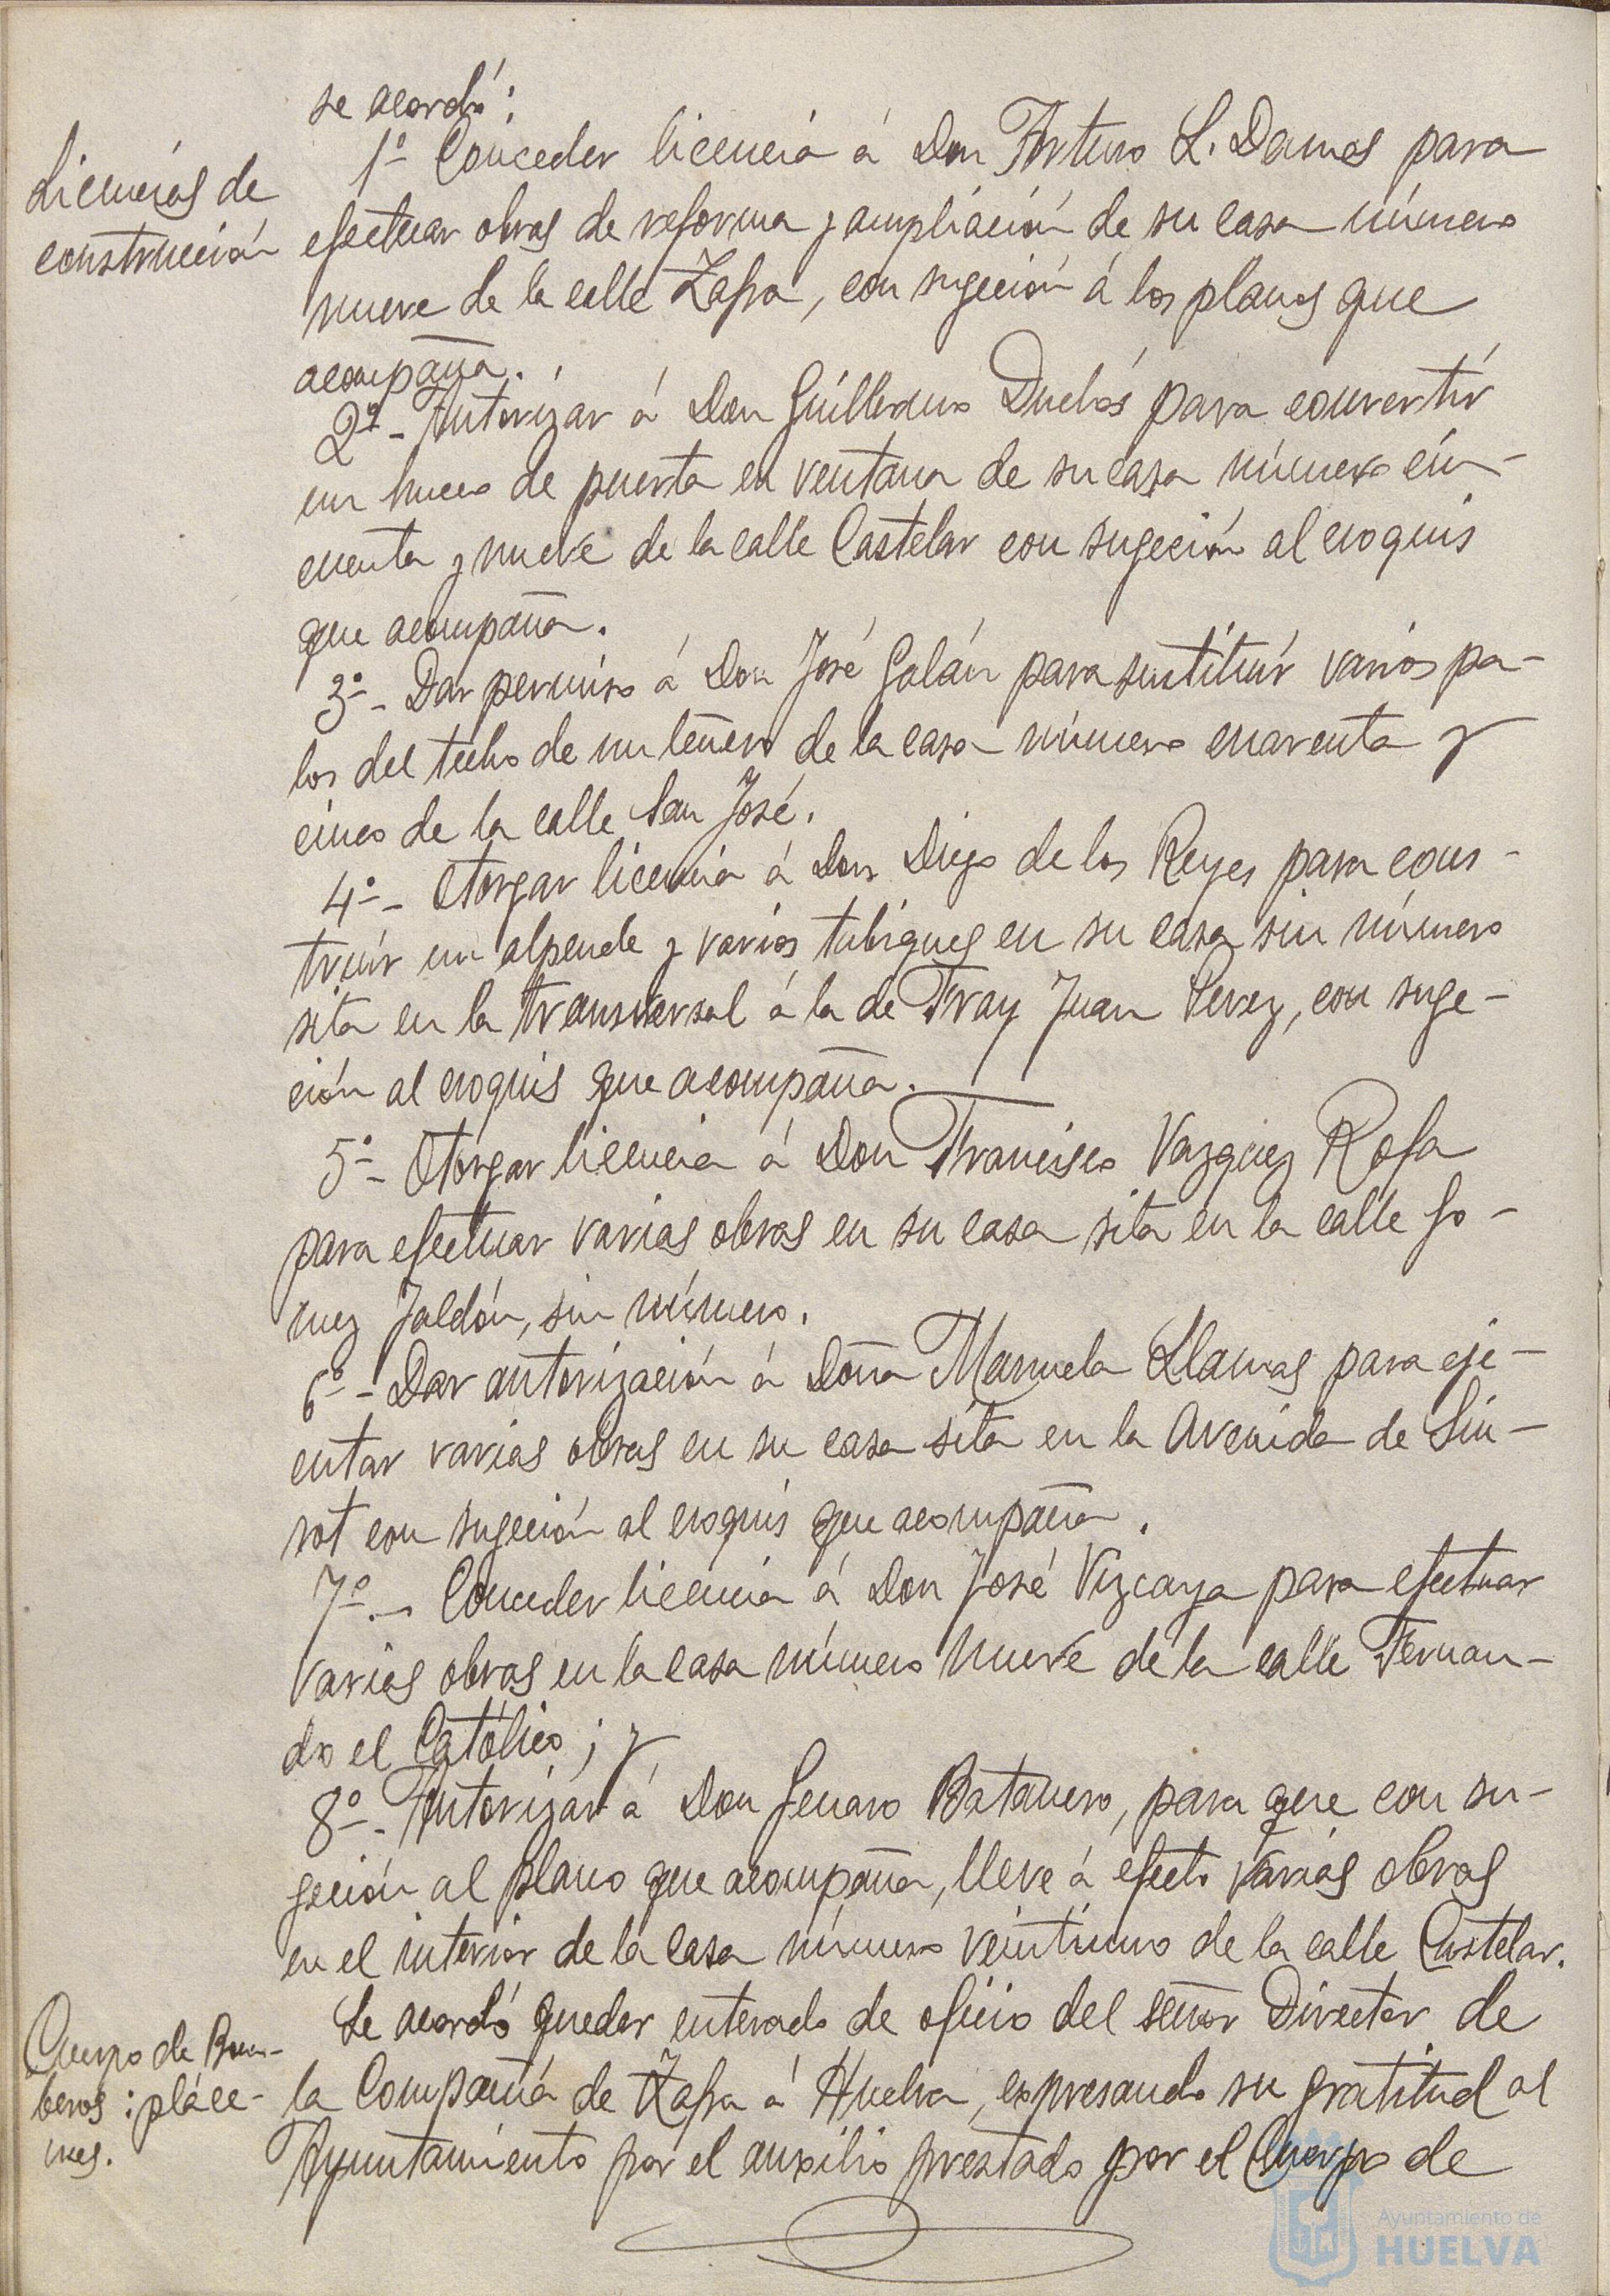 se acordó:
Licencias de
construcción
1º Conceder licencia á Don Arturo L. Damas para
efectuar obras de reforma y ampliación de su casa número
nueve de la calle Zafra, con sugeción á los planos que
acompaña.
2º - Autorizar á Don Guillermo Duclós para convertir
un hueco de puerta en ventana de su casa número cin-
cuenta y nueve de la calle Castelar con sugeción al croquis
que acompaña.
3º - Dar permiso á Don José Galán para sustituir varios pa-
los del techo de un tenero de la casa número cuarenta y
cinco de la calle San José.
4º - Otorgar licencia á Don Diego de los Reyes para cons-
truir un alpende y varios tabiques en su casa sin número
sita en la transversal á la de Fray Juan Perez, con suge-
ción al croquis que acompaña.
5º - Otorgar licencia á Don Francisco Vazquez Rofa
para efectuar varias obras en su casa sita en la calle Go-
mez Jaldón, sin número.
6º - Dar autorización á Doña Manuela Llamas para eje-
cutar varias obras en su casa sita en la Avenida de Sin-
rot con sugeción al croquis que acompaña.
7º - Conceder licencia á Don José Vizcaya para efectuar
varias obras en la casa número nueve de la calle Fernan-
do el Católico; y
8º - Autorizar á Don Genaro Batanero, para que con su-
geción al plano que acompaña, lleve á efecto varias obras
en el interior de la casa número veintiuno de la calle Castelar.
Cuerpo de Bom-
beros: pláce-
mes.
Se acordó quedar enterado de oficio del señor Director de
la Compañía de Zafra á Huelva, expresando su gratitud al
Ayuntamiento por el auxilio prestado por el Cuerpo de
Ayuntamiento de
HUELVA